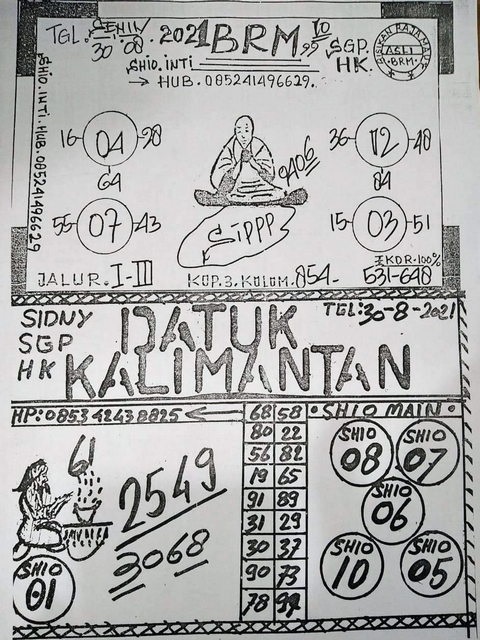 TGL. SENIN 30-08. 2021 BRM. 10 55 SGP. HK.
ASLI BRM.
SHIO. INTI
→ HUB. 085241496629.
SHIO. INTI. HUB. 085241496629
16 04 28
64
55 07 43
9406
SIPPP
36 02 48
84
15 03 51
EKOR. 100%
JALUR. I-III KOP. 3. KOLOM. 854- 531-648
SIDNY SGP HK
TGL: 30-8-2021
DATUK
KALIMANTAN
HP: 085342438825
68 58
80 22
56 82
19 65
91 89
31 29
30 37
90 73
78 94
• SHIO MAIN •
61
2549
3068
SHIO 01
SHIO 08
SHIO 07
SHIO 06
SHIO 10
SHIO 05